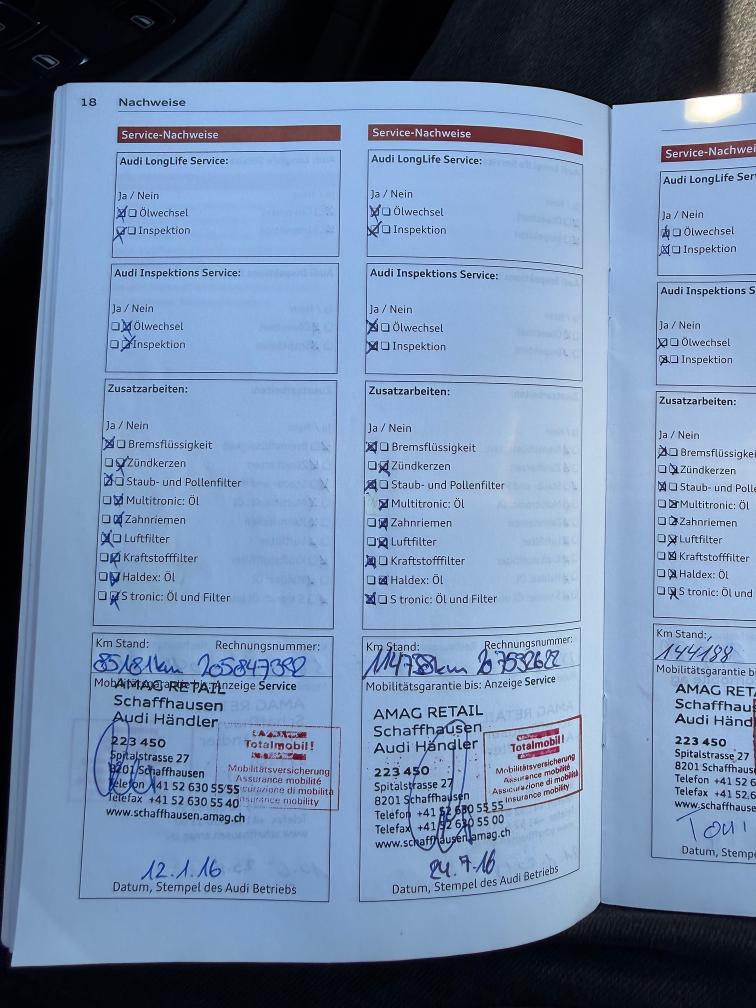 18 Nachweise
Service-Nachweise
Audi LongLife Service:
Ja / Nein
Ölwechsel
Inspektion
Audi Inspektions Service:
Ja / Nein
Ölwechsel
Inspektion
Zusatzarbeiten:
Ja / Nein
Bremsflüssigkeit
Zündkerzen
Staub- und Pollenfilter
Multitronic: Öl
Zahnriemen
Luftfilter
Kraftstofffilter
Haldex: Öl
S tronic: Öl und Filter
Km Stand: Rechnungsnummer:
85181km 205847392
Mobilitätsgarantie bis: Anzeige Service
AMAG RETAIL
Schaffhausen
Audi Händler
223 450
Spitalstrasse 27
8201 Schaffhausen
Telefon +41 52 630 55 55
Telefax +41 52 630 55 40
www.schaffhausen.amag.ch
Totalmobil!
Mobilitätsversicherung
Assurance mobilité
Assicurazione di mobilità
Insurance mobility
12.1.16
Datum, Stempel des Audi Betriebs
Service-Nachweise
Audi LongLife Service:
Ja / Nein
Ölwechsel
Inspektion
Audi Inspektions Service:
Ja / Nein
Ölwechsel
Inspektion
Zusatzarbeiten:
Ja / Nein
Bremsflüssigkeit
Zündkerzen
Staub- und Pollenfilter
Multitronic: Öl
Zahnriemen
Luftfilter
Kraftstofffilter
Haldex: Öl
S tronic: Öl und Filter
Km Stand: Rechnungsnummer:
Mobilitätsgarantie bis: Anzeige Service
AMAG RETAIL
Schaffhausen
Audi Händler
223 450
Spitalstrasse 27
8201 Schaffhausen
Telefon +41 52 630 55 55
Telefax +41 52 630 55 00
www.schaffhausen.amag.ch
Totalmobil!
Mobilitätsversicherung
Assurance mobilité
Assicurazione di mobilità
Insurance mobility
24.7.16
Datum, Stempel des Audi Betriebs
Service-Nachwei
Audi LongLife Ser
Ja / Nein
Ölwechsel
Inspektion
Audi Inspektions S
Ja / Nein
Ölwechsel
Inspektion
Zusatzarbeiten:
Ja / Nein
Bremsflüssigkei
Zündkerzen
Staub- und Polle
Multitronic: Öl
Zahnriemen
Luftfilter
Kraftstofffilter
Haldex: Öl
S tronic: Öl und
Km Stand:
144188
Mobilitätsgarantie
AMAG RET
Schaffhaus
Audi Händ
223 450
Spitalstrasse 2
8201 Schaffha
Telefon +41 5
Telefax +41 52
www.schaffhause
Datum, Stemp